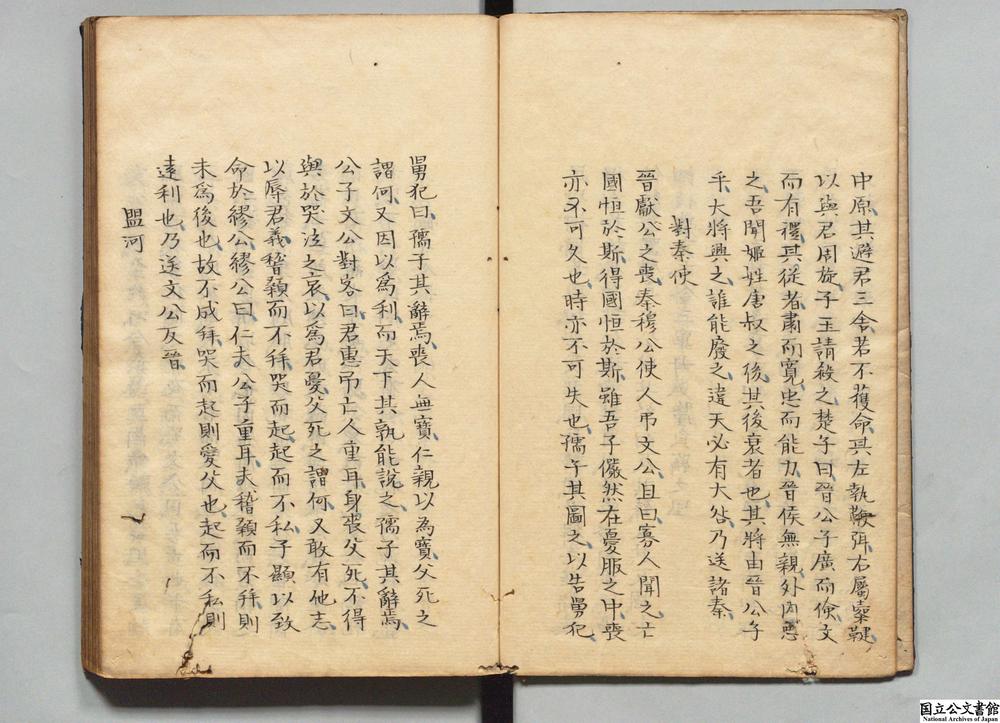 中原其避君三舍若不獲命其左執鞭弭右屬櫜鞬
以與君周旋子玉請殺之楚子曰晉公子廣而儉文
而有禮其從者肅而寬忠而能力晉侯無親外內惡
之吾聞姬姓唐叔之後其後衰者也其將由晉公子
乎天將興之誰能廢之違天必有大咎乃送諸秦
對秦使
晉獻公之喪秦穆公使人弔文公且曰寡人聞之亡
國恒於斯得國恒於斯雖吾子儼然在憂服之中喪
亦不可久也時亦不可失也孺子其圖之以告舅犯
舅犯曰孺子其辭焉喪人無寶仁親以為寶父死之
謂何又因以爲利而天下其孰能說之孺子其辭焉
公子文公對客曰君惠弔亡人重耳身喪父死不得
與於哭泣之哀以爲君憂父死之謂何又敢有他志
以辱君義稽顙而不拜哭而起起而不私子顯以致
命於繆公繆公曰仁夫公子重耳夫稽顙而不拜則
未爲後也故不成拜哭而起則愛父也起而不私則
遠利也乃送文公反晉
盟河
国立公文書館
National Archives of Japan